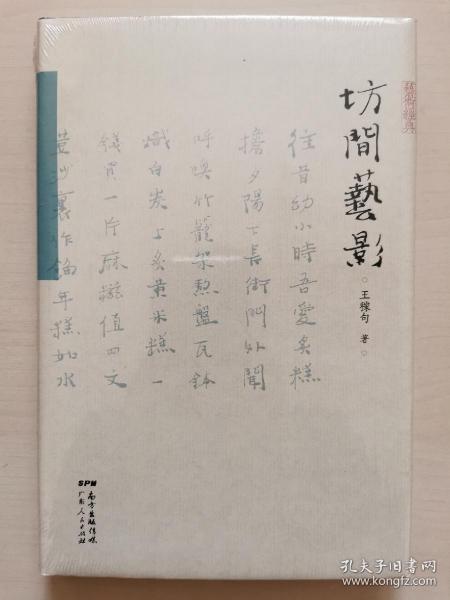 坊間藝影
王稼句 著
往昔幼小時吾愛炙糕
擔夕陽下長街門外聞
呼喚竹籠架熬盤瓦缽
熾白炭上炙黄米糕一
錢買一片麻糍值四文
荳沙裹作餡年糕如水
SPM
南方出版传媒
广东人民出版社
孔夫子旧书网
www.kongfz.com